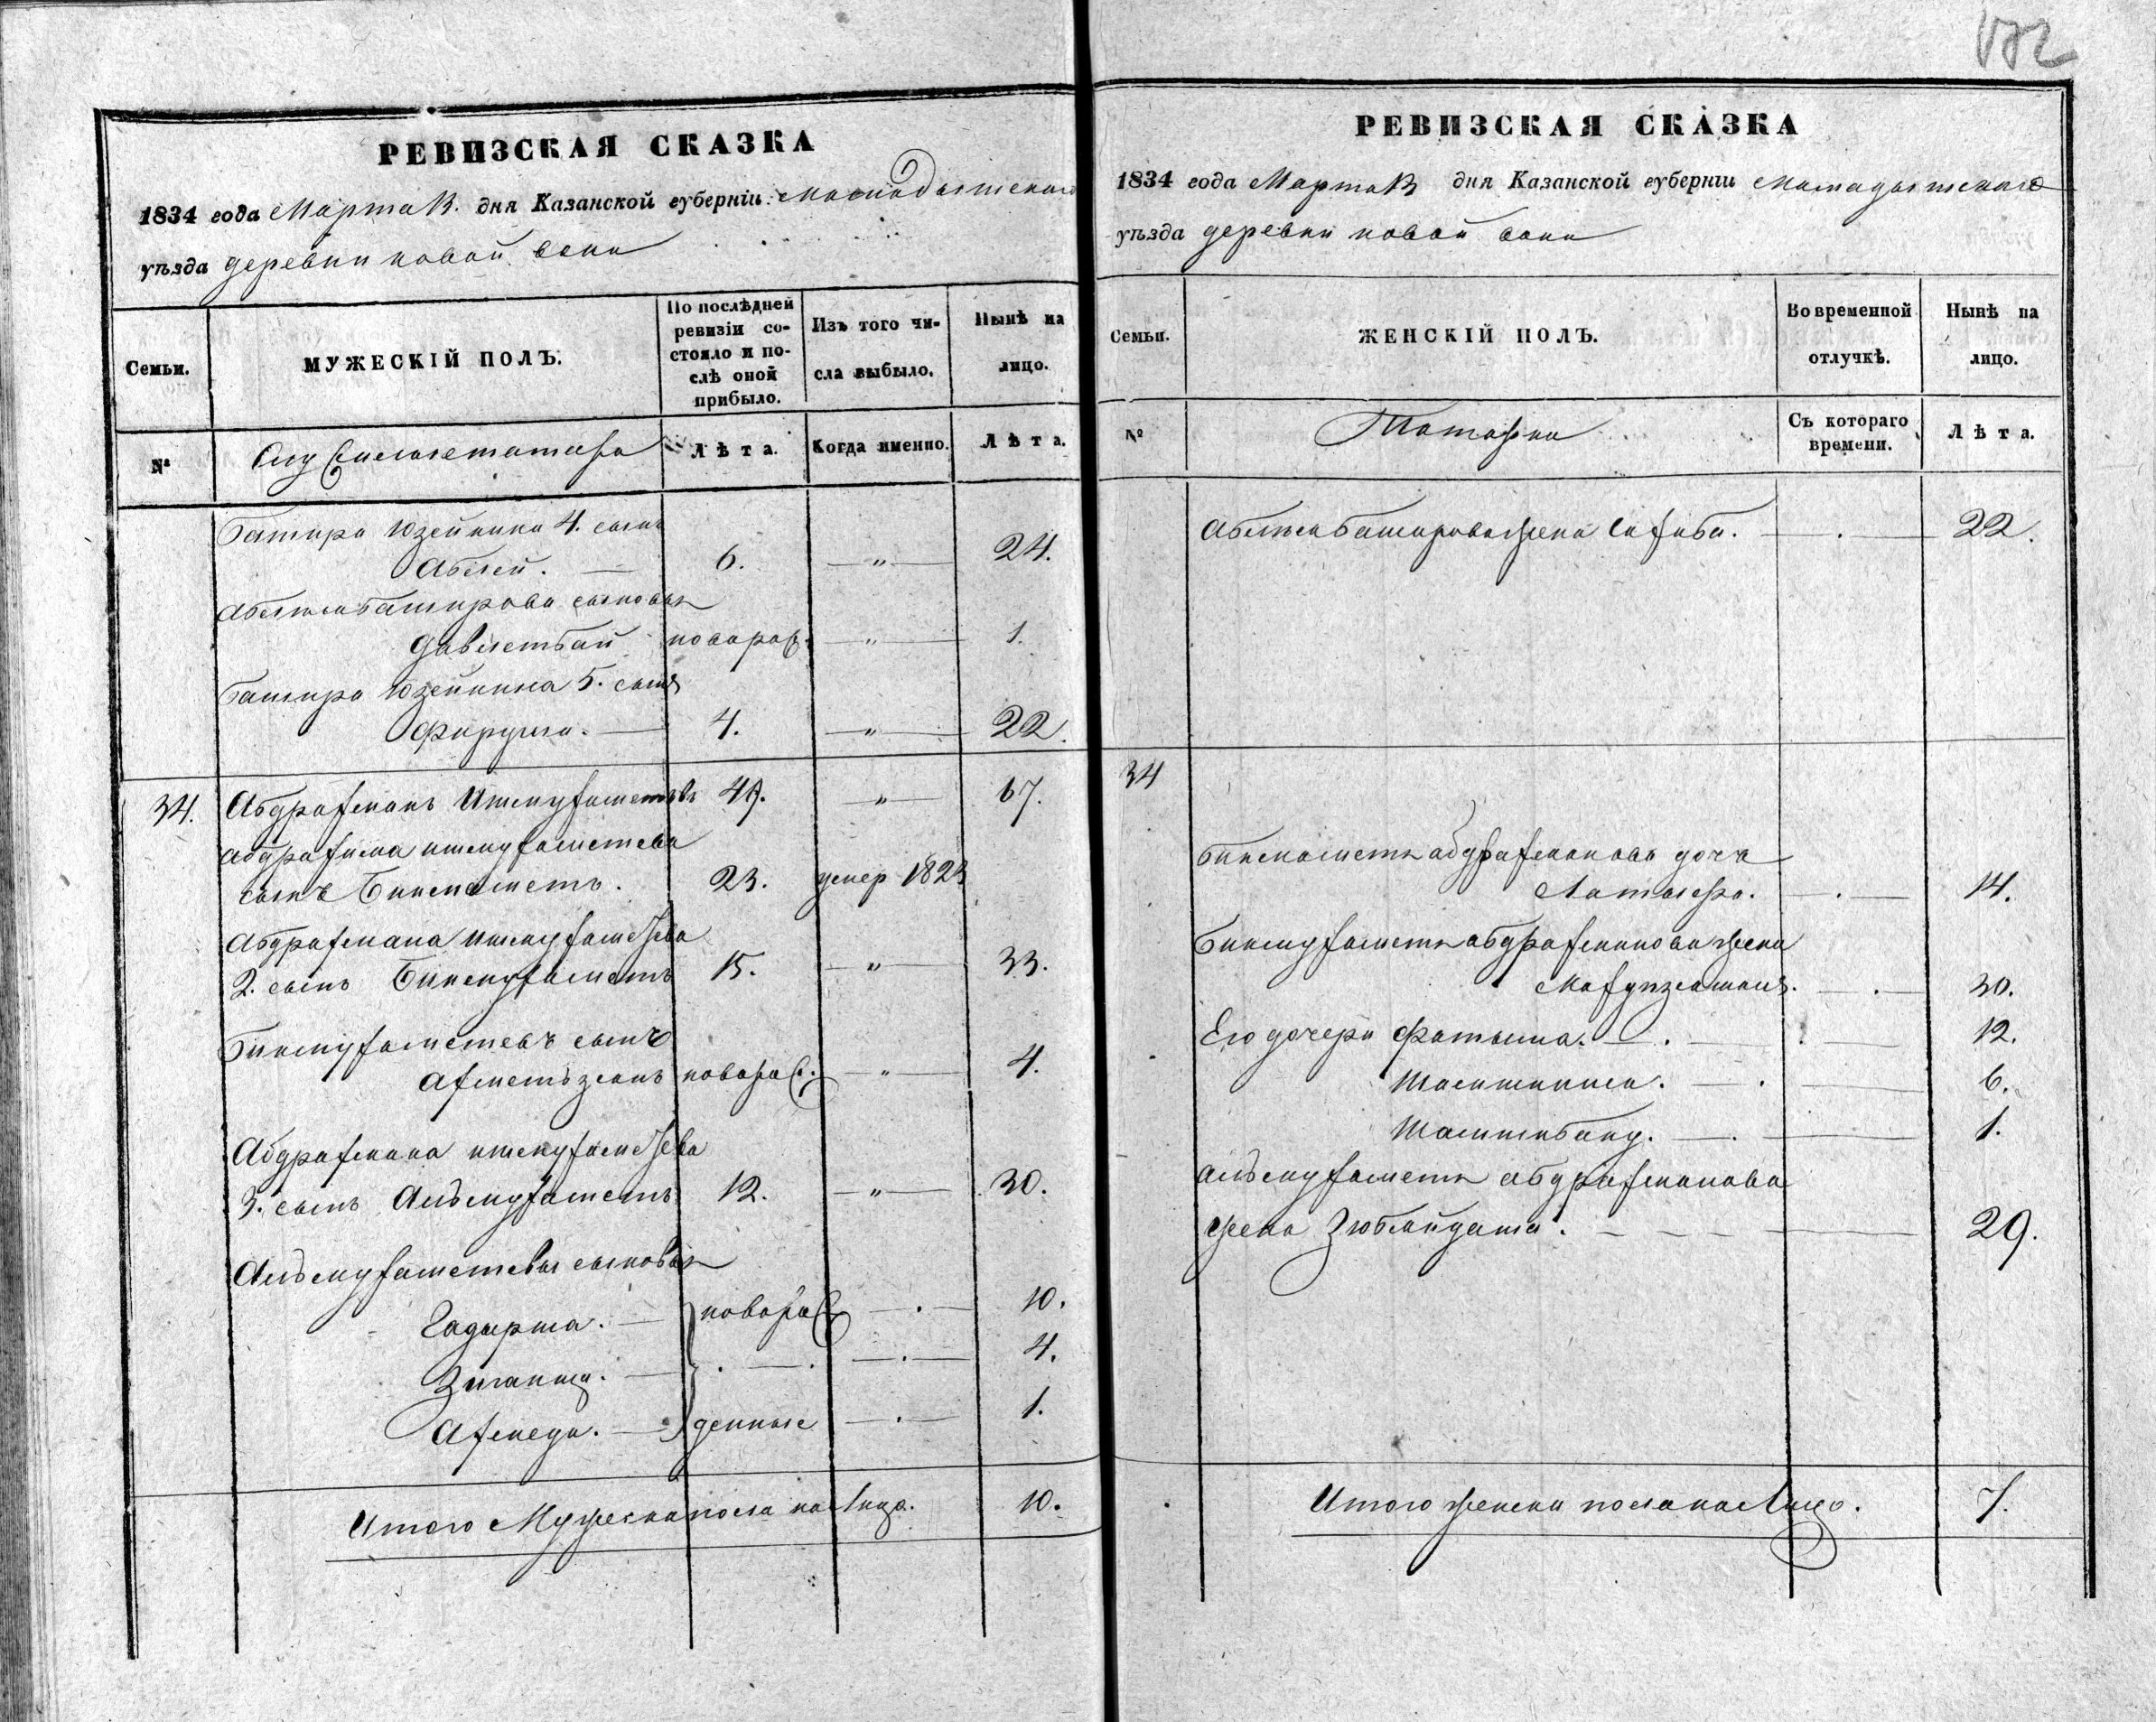 172
РЕВИЗСКАЯ СКАЗКА
1834 года Марта 13. дня Казанской губерніи Мамадышскаго
уѣзда деревни новой
Семьи.
МУЖЕСКІЙ ПОЛЪ.
По послѣдней ревизіи состояло и послѣ оной прибыло.
Изъ того числа выбыло.
Нынѣ на лицо.
№
Лѣта.
Когда именно.
Лѣта.
Башира Юзейкина 4. сынъ
Аблей. — 6. — " — 24.
Аблея Баширова сыновья
Давлетбай новорож. — " — 1.
Башира Юзейкина 5. сынъ
— 4. — " — 22.
34. Абдрахманъ Ишмухаметевъ 49. — " — 67.
Абдрахмана ишмухаметева
сынъ Бикмаметь. 23. умер 1823
Абдрахмана ишмухаметева
2. сынъ Бикмухаметь 15. — " — 33.
Бикмухаметевъ сынъ
Ахметьзянъ новорож. — " — 4.
Абдрахмана ишмухаметева
3. сынъ Альмухаметь 12. — " — 30.
Альмухаметевы сыновья
Гадырша. — новорож — . — 10.
Зиганша. — . — . — . — 4.
Ахмеди. — денные — . — 1.
Итого Мужеска пола на Лицо. 10.
РЕВИЗСКАЯ СКАЗКА
1834 года Марта 13 дня Казанской губерніи Мамадышскаго
уѣзда деревни новой
Семьи.
ЖЕНСКІЙ ПОЛЪ.
Во временной отлучкѣ.
Нынѣ на лицо.
№
Татарки
Съ котораго времени.
Лѣта.
Аблея Баширова жена Сахиба. — . — 22.
34
Бикмаметя абдрахманова дочь
— . — 14.
Бикмухаметя абдрахманова жена
— . — 30.
Его дочери Фатыма. — . — 12.
— . — 6.
Шамсибану. — . — 1.
альмухаметя абдрахманова
жена Зюбайда. — — — 29.
Итого женска пола на Лицо. 7.